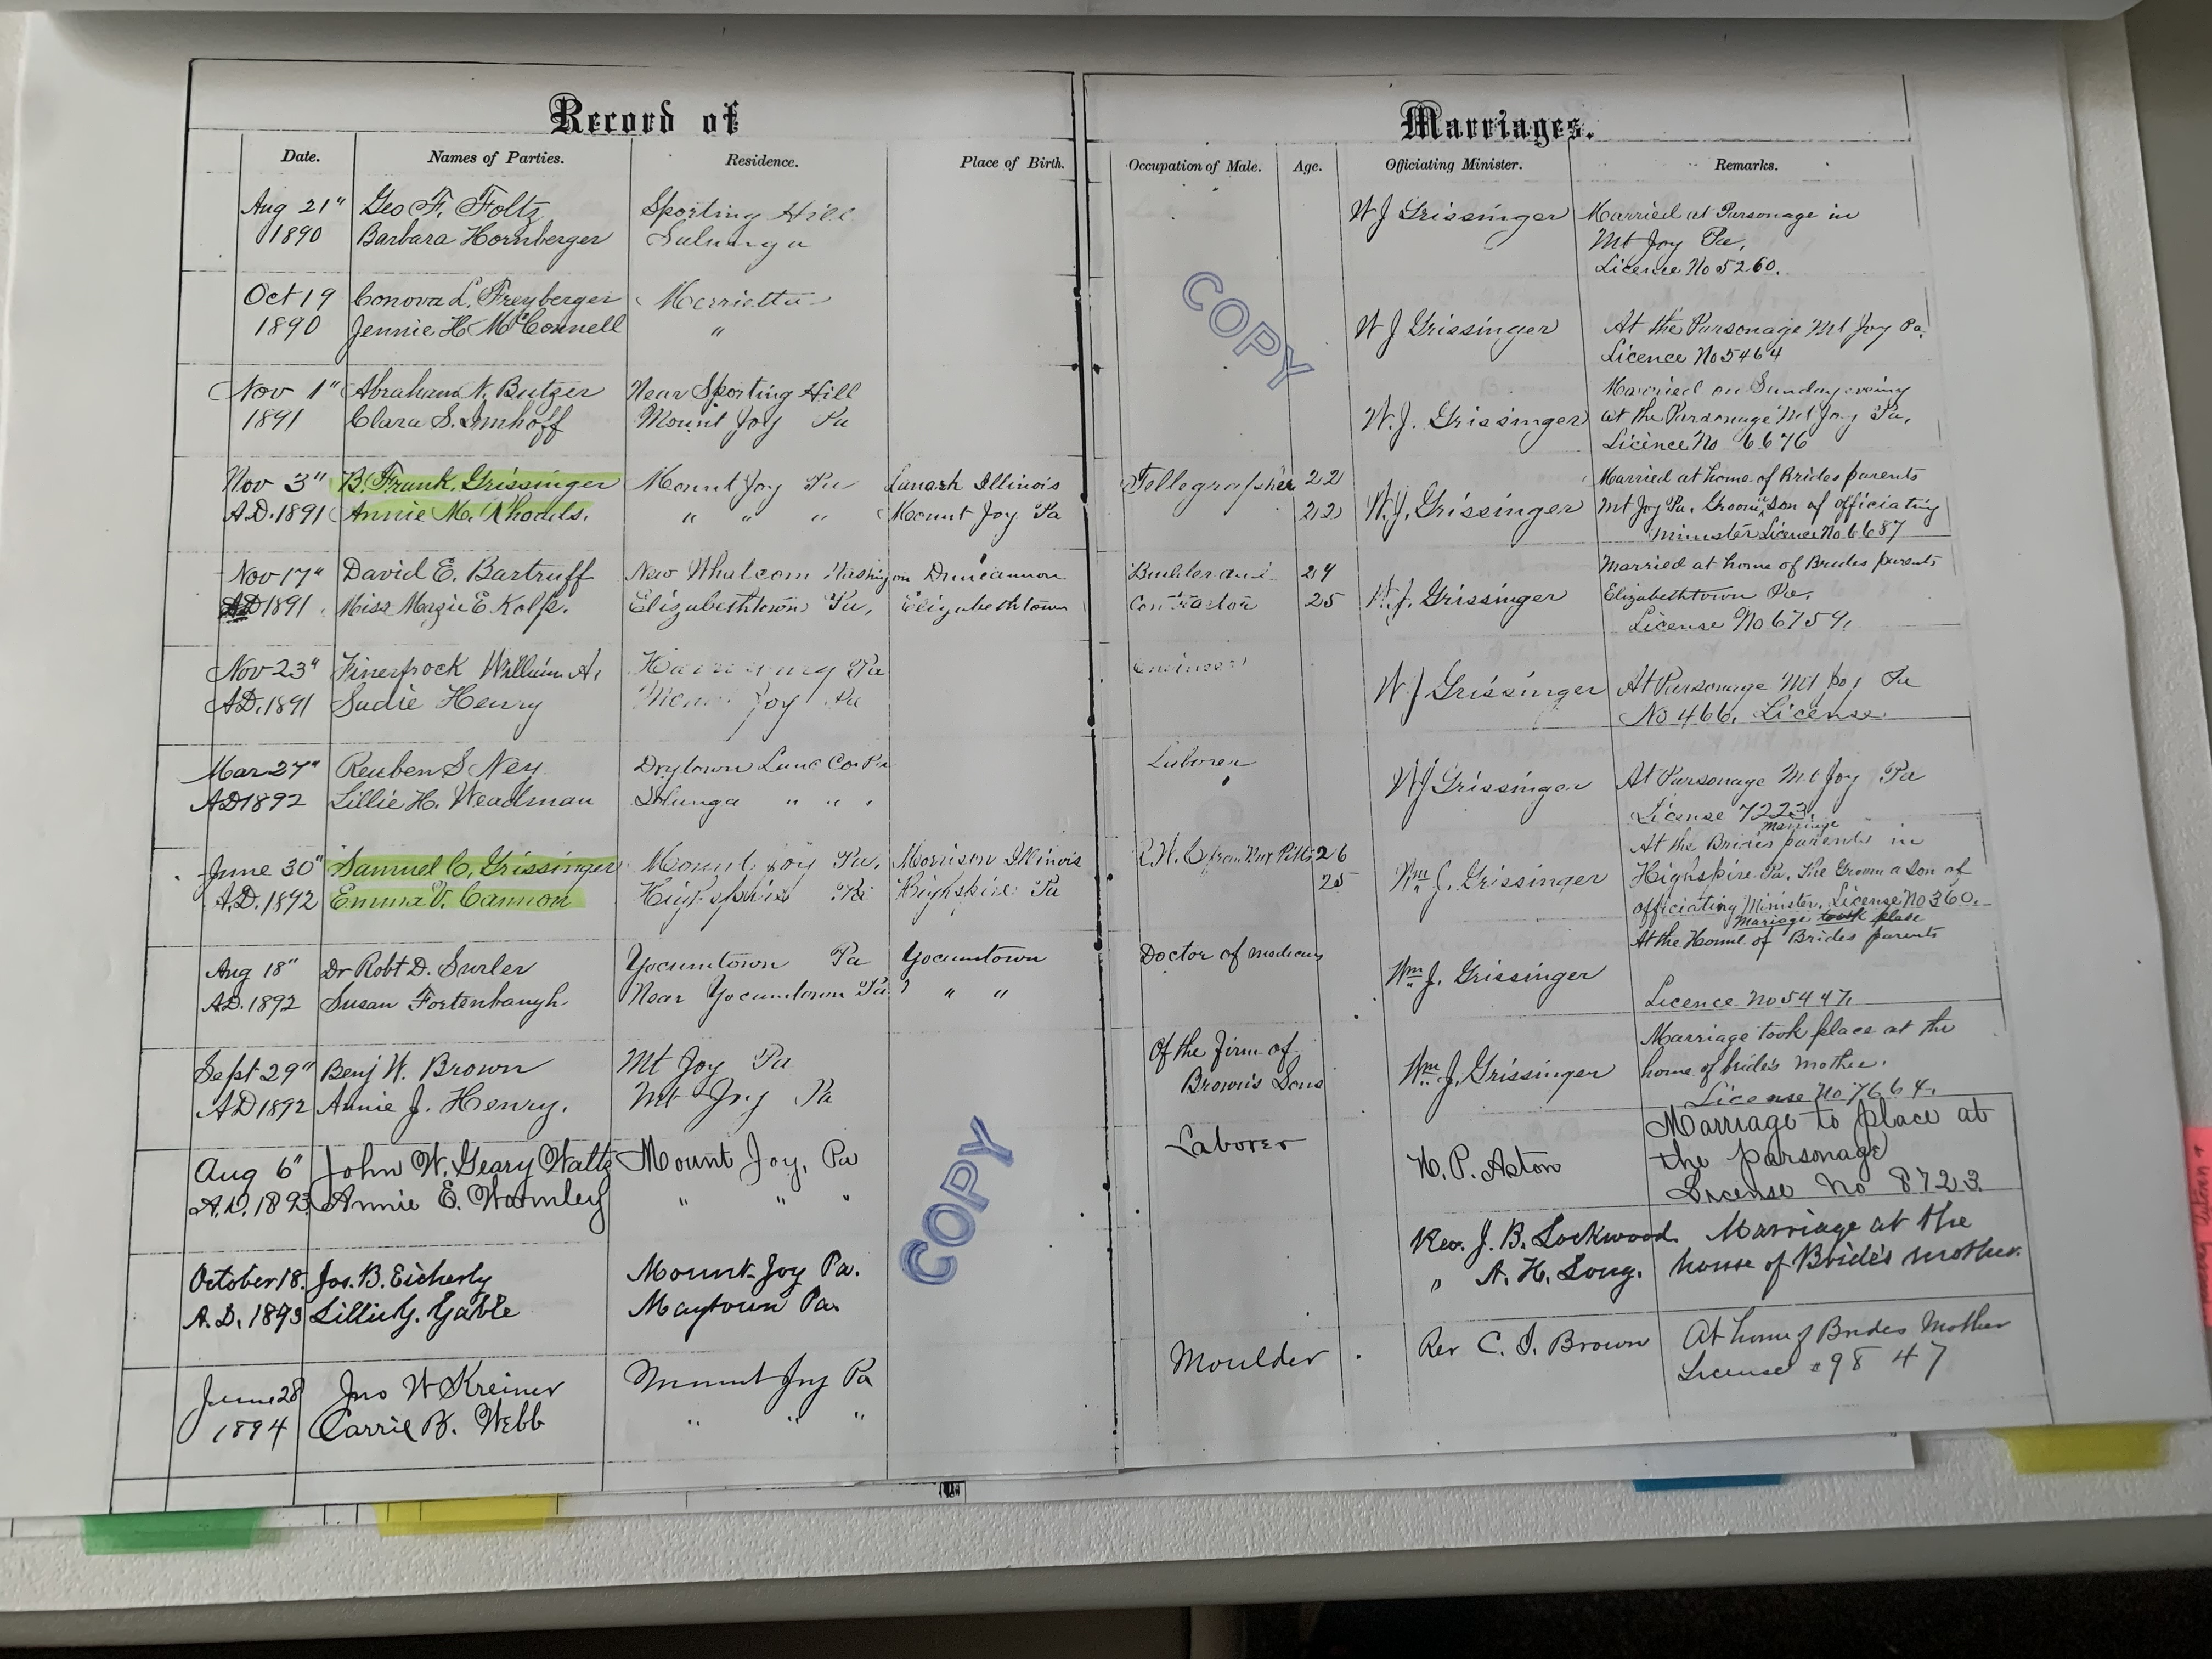 Record of Marriages.
Date. Names of Parties. Residence. Place of Birth. Occupation of Male. Age. Officiating Minister. Remarks.
Aug 21" Geo F. Foltz Sporting Hill W J Grissinger Married at Parsonage in
1890 Barbara Hornberger Salunga Mt Joy Pa.
Licence No 5260.
Oct 19 Conova L. Freyberger Marrietta W J Grissinger At the Parsonage Mt Joy Pa.
1890 Jennie H. McConnell " Licence No 5464
Nov 1" Abraham N. Butzer Near Sporting Hill W. J. Grissinger Married on Sunday evening
1891 Clara S. Imhoff Mount Joy Pa at the Parsonage Mt Joy Pa.
Licence No 6676
Nov 3" B. Frank Grissinger Mount Joy Pa Lanark Illinois Tellegrapher 22 W. J. Grissinger Married at home of Brides parents
A.D. 1891 Annie M. Rhoads. " " " Mount Joy Pa 22 Mt Joy Pa. Groom son of officiating
minister Licence No 6687
Nov 17" David E. Bartruff New Whatcom Duncannon 24 W. J. Grissinger Married at home of Brides parents
AD 1891 Miss Mazie E. Kolp. Elizabethtown Pa, Elizabethtown Contractor 25 Elizabethtown Pa.
License No 6759.
Nov 23" Finefrock William A. Pa W J Grissinger At Parsonage Mt Joy Pa
A.D. 1891 Sadie Henry Joy Pa No 466. License.
Mar 27" Reuben S Ney Drytown Lanc Co Pa Laborer W J Grissinger At Parsonage Mt Joy Pa
AD 1892 Lillie H. Weadman Salunga " " " License 7223
Marriage
June 30" Samuel C. Grissinger Mount Joy Pa. Morrison Illinois 26 Wm J. Grissinger At the Brides parents in
A.D. 1892 Emma V. Cannon Highspire Pa Highspire Pa 25 Highspire Pa. The Groom a son of
officiating Minister. License No 360.
Mariage took place
Aug 18" Dr Robt D. Yocumtown Pa Yocumtown Doctor of medicine Wm J. Grissinger At the Home of Brides parents
A.D. 1892 Susan Fortenbaugh Near Yocumtown Pa " " Licence No 5447.
Sept 29" Benj W. Brown Mt Joy Pa Of the firm of Brown's Sons Wm J. Grissinger Marriage took place at the
AD 1892 Annie J. Henry. Mt Joy Pa home of bride's mother.
License No 7664.
Aug 6" John W. Geary Waltz Mount Joy, Pa Laborer W. P. Aston Marriage to place at
A.D. 1893 Annie E. Wormley " " " the parsonage
License No 8723
October 18. Jos. B. Eicherly Mount Joy Pa. Rev. J. B. Lockwood. Marriage at the
A.D. 1893 Lillie G. Gable Maytown Pa. " A. H. Long. house of Bride's mother.
June 28 Jno W Kreiner Mount Joy Pa Moulder Rev C. I. Brown At home of Brides Mother
1894 Carrie B. Webb " " " License #9847
COPY
COPY